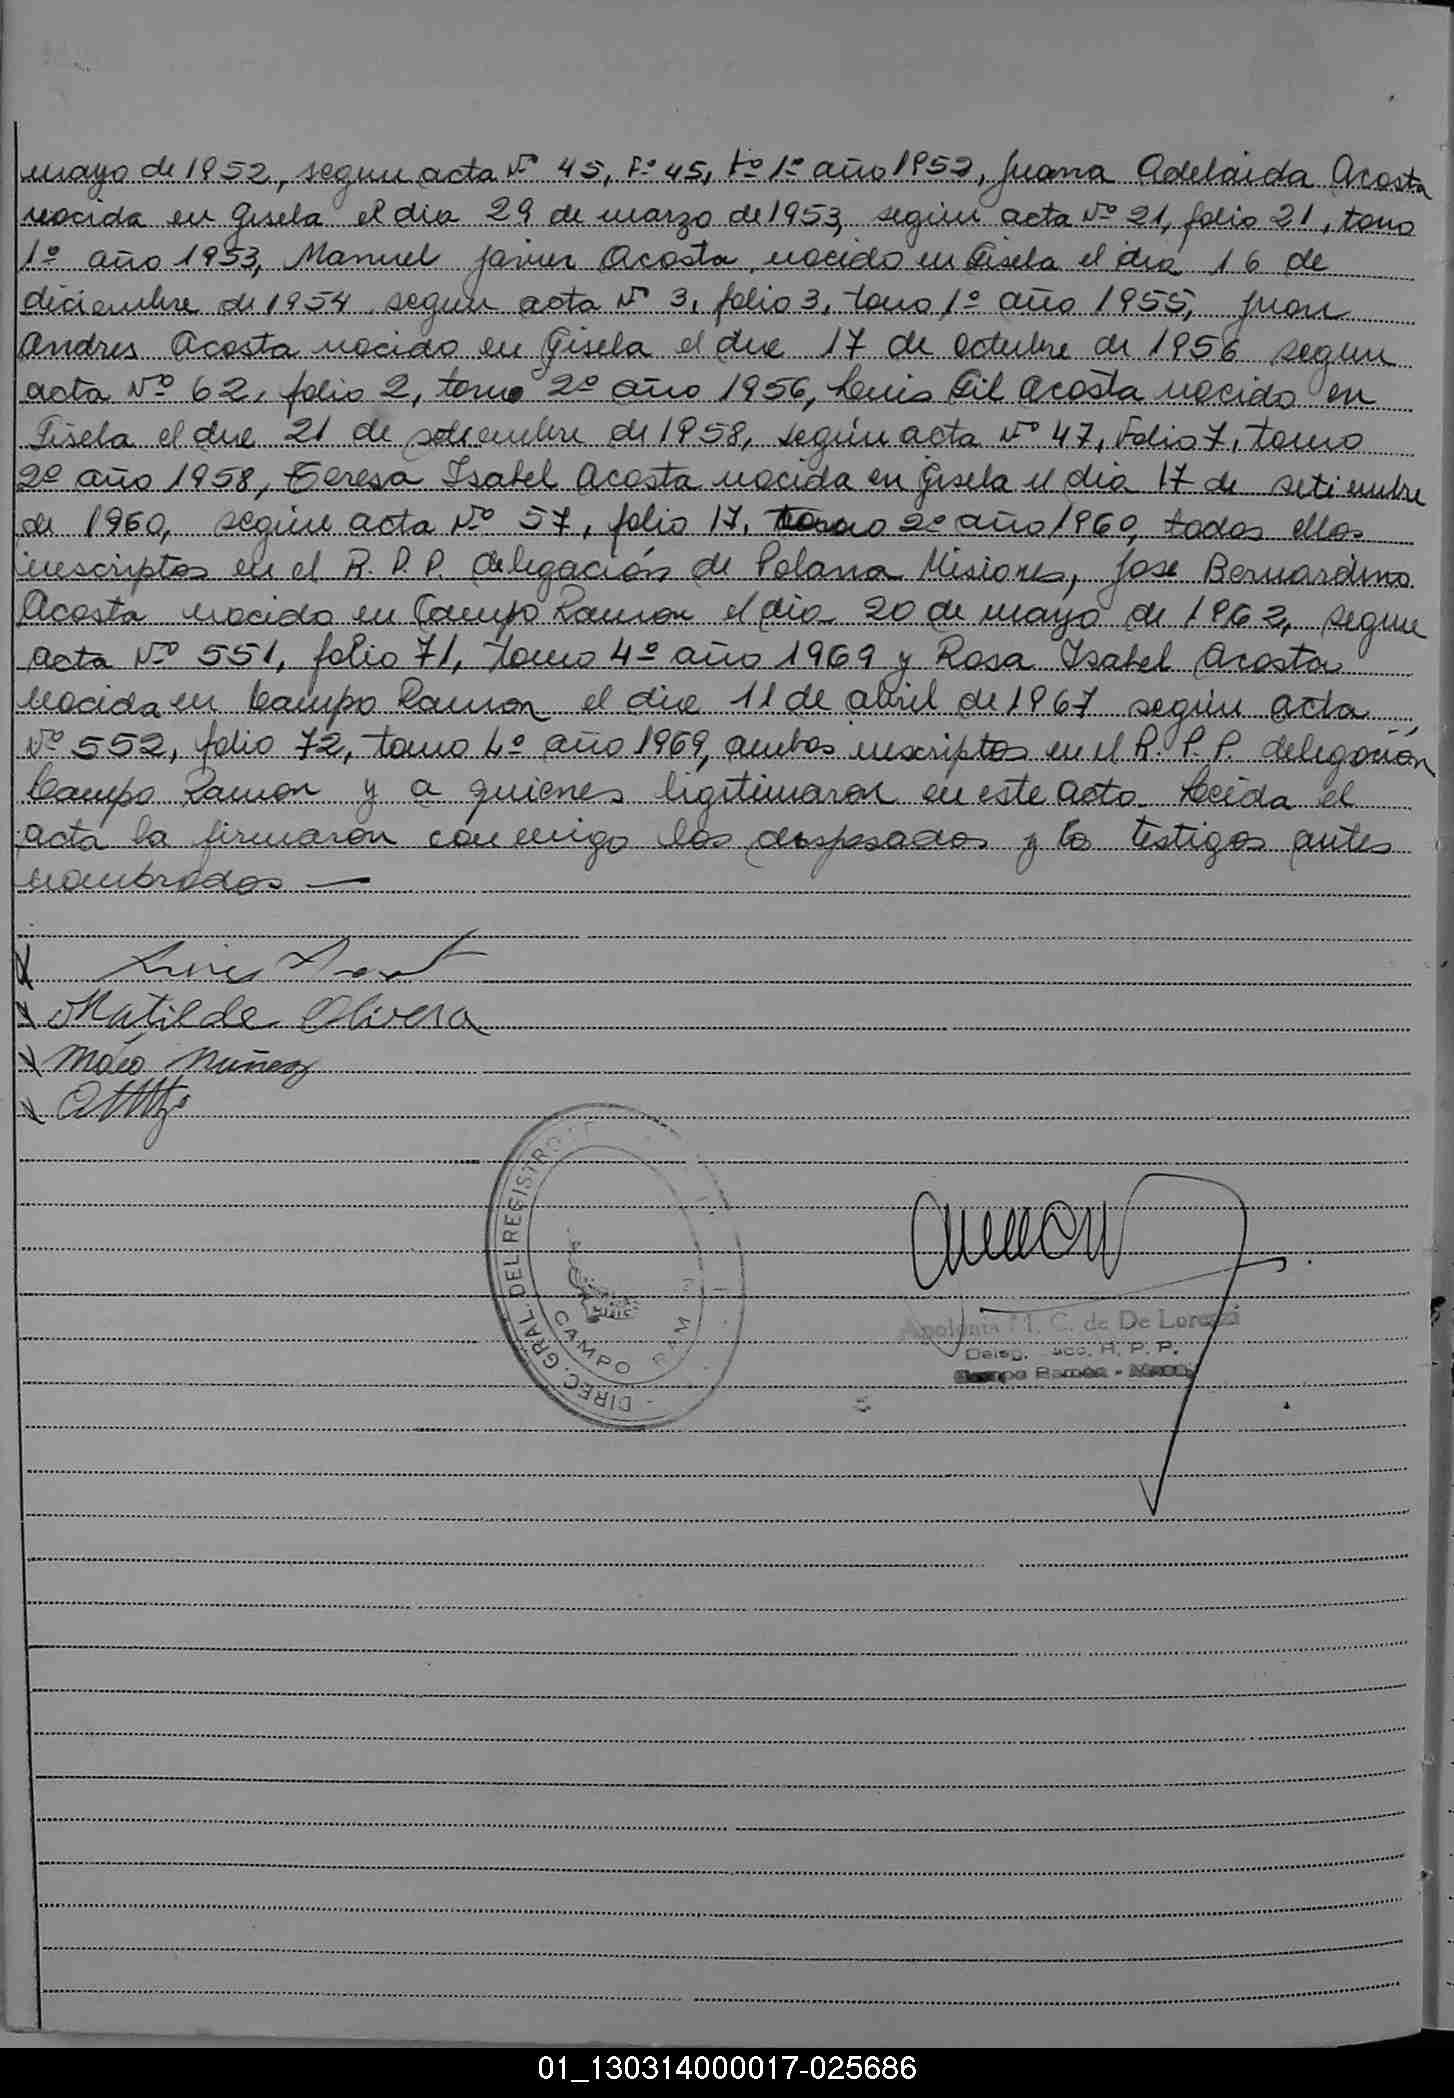 mayo de 1952, segun acta Nº 45, Fº 45, tº 1º año 1952, Juana Adelaida Acosta
nacida en Gisela el dia 29 de marzo de 1953, según acta Nº 21, folio 21, tomo
1º año 1953, Manuel Javier Acosta, nacido en Gisela el dia 16 de
diciembre de 1954 segun acta Nº 3, folio 3, tomo 1º año 1955, Juan
Andres Acosta nacido en Gisela el dia 17 de octubre de 1956 segun
acta Nº 62, folio 2, tomo 2º año 1956, Luis Gil Acosta nacido en
Gisela el dia 21 de setiembre de 1958, según acta Nº 47, Folio 7, tomo
2º año 1958, Teresa Isabel Acosta nacida en Gisela el dia 17 de setiembre
de 1960, según acta Nº 57, folio 17, tomo 2º año 1960, todos ellos
inscriptos en el R. P. P. delegación de Polana Misiones, Jose Bernardino
Acosta nacido en Campo Ramon el dia 20 de mayo de 1962, segun
acta Nº 551, folio 71, tomo 4º año 1969 y Rosa Isabel Acosta
nacida en Campo Ramon el dia 11 de abril de 1967 según acta
Nº 552, folio 72, tomo 4º año 1969, ambos inscriptos en el R. P. P. delegación
Campo Ramon y a quienes ligitimaron en este acto. Leida el
acta la firmaron conmigo los desposados y los testigos antes
nombrados —
Matilde Olivera
Nuñez
DIREC. GRAL. DEL REGISTRO
CAMPO RAM
M. C. de De Lorenzi
Deleg. R. P. P.
Campo Ramón
01_130314000017-025686